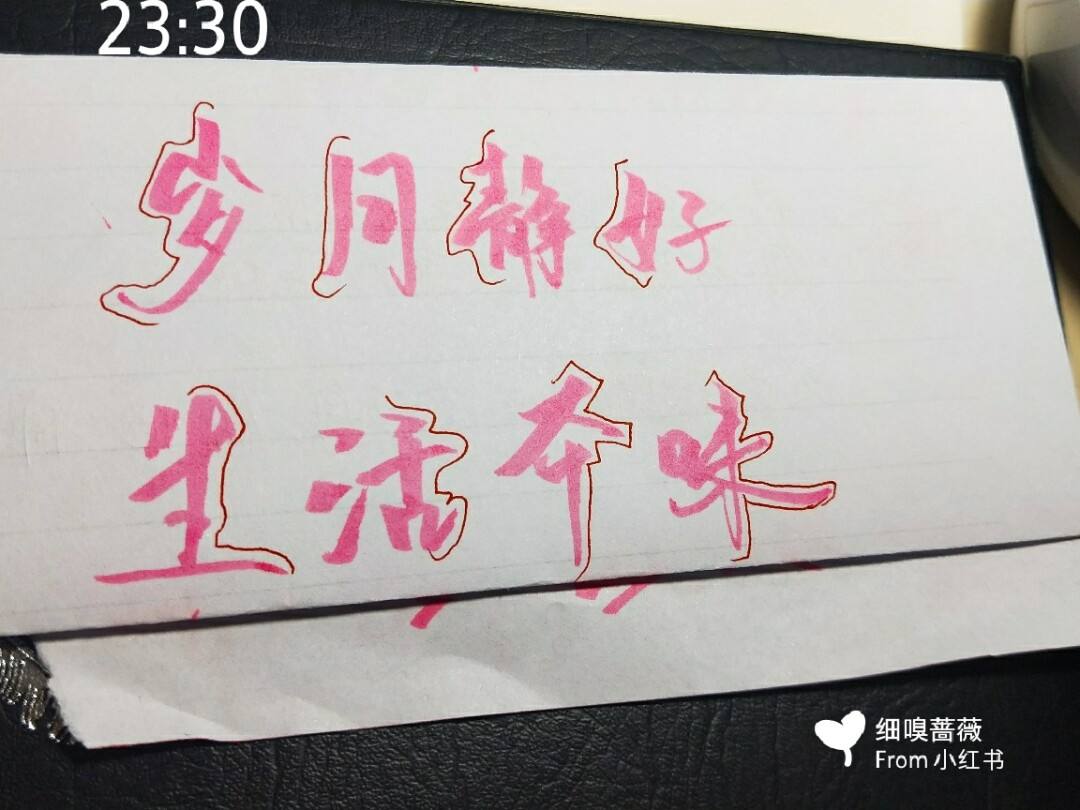 23:30
岁月静好
生活本味
细嗅蔷薇
From 小红书